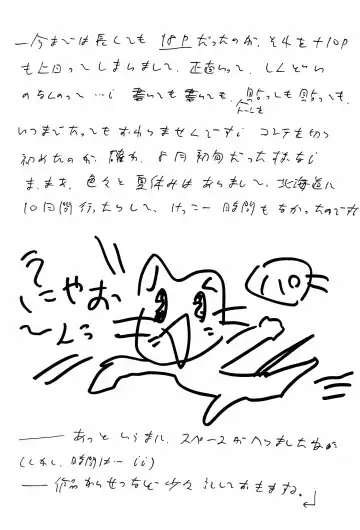 一今までは長くても 18P だったのが、それを+10P
も上回ってしまいまして、正直いって、しんどい
のなんのって…; 書いても書いても、貼っても貼っても、
トーンも
いつまでたってもおわりませんです; コンテを切り
初めたのが、確か、8月初旬だった様な;
ま、まぁ、色々と夏休みはありまして、北海道に
10日間行ったりして、けっこー時間もなかったのですが
にゃお
〜ん
── あっという間に、スペースがへりましたねぇ
(しかし、時間は…;;)
── 作品からせつなど少々記しておきますね。